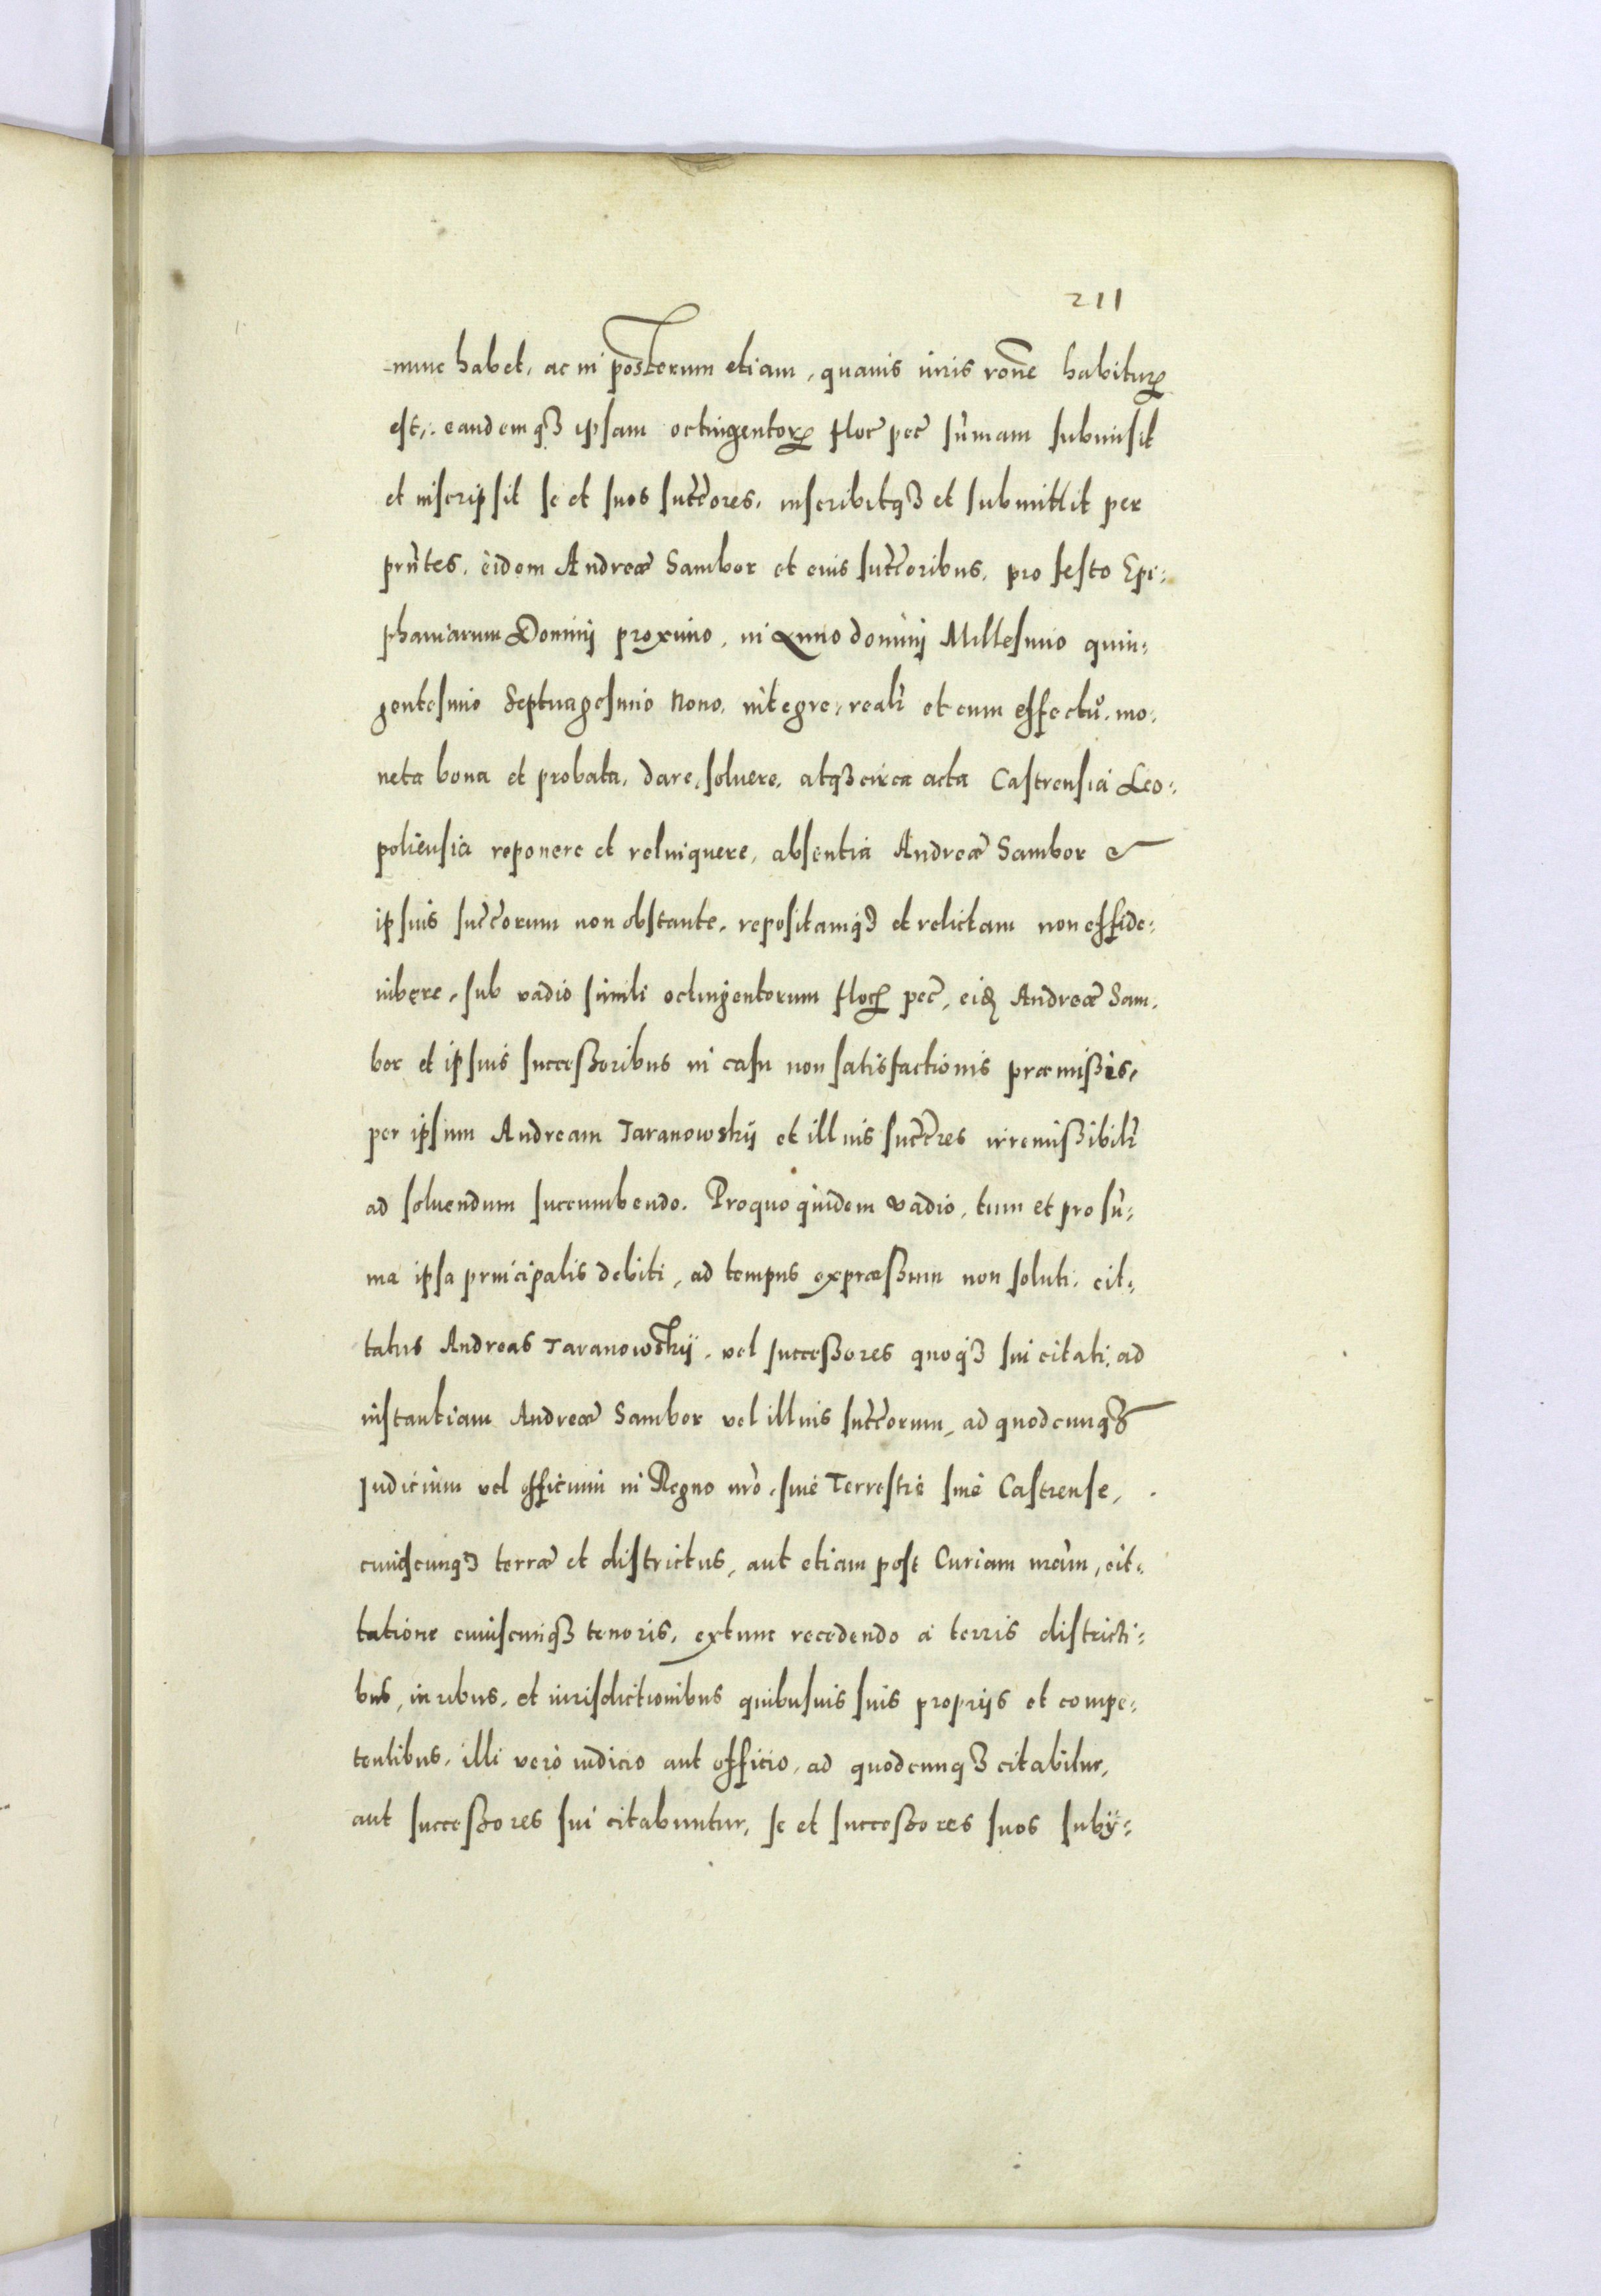 211
nunc habet, ac in posterum etiam, quauis iuris rõne habiturꝫ
est, eandemqꝫ ipsam octingentorꝝ floc̃ pec̃ sum̃am submisit
et inscripsit se et suos succ̃ores, inscribitqꝫ et submittit per
pñtes, eidem Andreæ Sambor et eius succ̃oribus, pro festo Epi:
phaniarum Dominij proximo, in Anno dominij Millesimo quin:
gentesimo Septuagesimo Nono, integre, realr̃ et cum effectu, mo:
neta bona et probata, dare, soluere, atqꝫ circa acta Castrensia Leo:
poliensia reponere et relinquere, absentia Andreæ Sambor &
ipsius succ̃orum non obstante, repositamqꝫ et relictam non effide:
iubere, sub vadio simili octingentorum flocꝝ pec̃, eidꝫ Andreæ Sam:
bor et ipsius successoribus in casu non satisfactionis præmissis,
per ipsum Andream Taranowskij et illius succ̃res irremissibilr̃
ad soluendum succumbendo. Pro quo quidem vadio, tum et pro sum̃:
ma ipsa principalis debiti, ad tempus expræssum non soluti, cit:
tatus Andreas Taranowskij, vel successores quoqꝫ sui citati, ad
instantiam Andreæ Sambor vel illius succ̃orum, ad quodcunqꝫ
Judicium vel officium in Regno nr̃o, siue Terrestre siue Castrense,
cuiuscunqꝫ terræ et districtus, aut etiam post Curiam nr̃am, cit:
tatione cuiuscunqꝫ tenoris, extunc recedendo a terris districti:
bus, iuribus, et iurisdictionibus quibusuis suis proprijs et compe:
tentibus, illi vero iudicio aut officio, ad quodcunqꝫ citabitur,
aut successores sui citabuntur, se et successores suos subij: